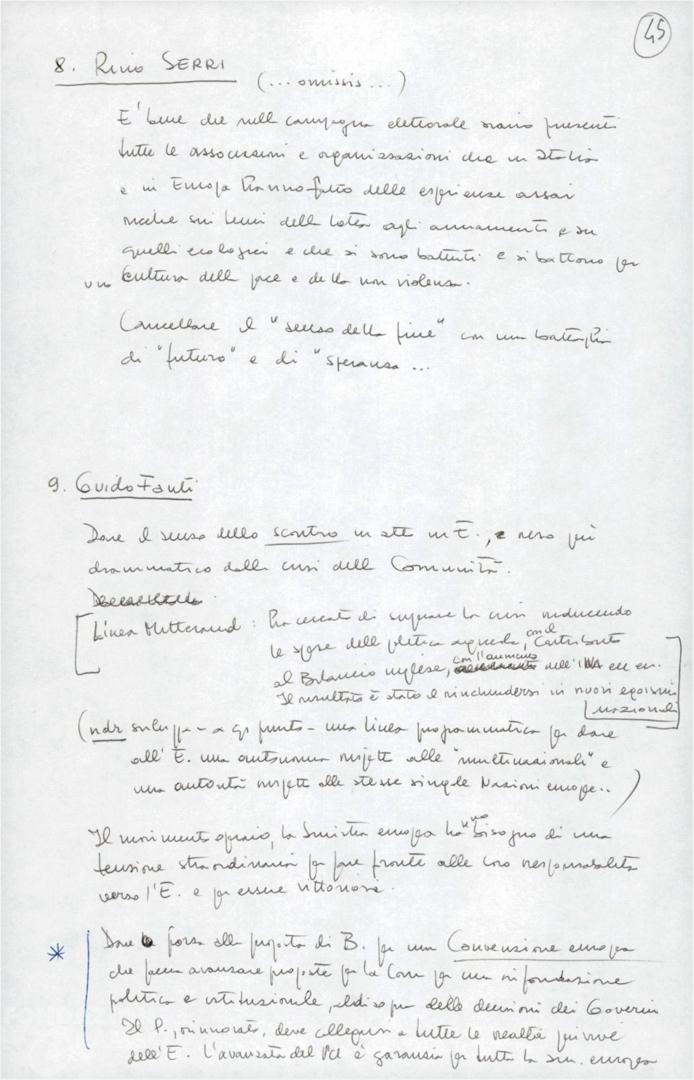 45
8. Rino SERRI
(... omissis ...)
E' bene che nella campagna elettorale siano presenti
tutte le associazioni e organizzazioni che in Italia
e in Europa hanno fatto delle esperienze assai
ricche sui temi della lotta agli armamenti e su
quelli ecologici e che si sono battuti e si battono per
una cultura della pace e della non violenza.
Cancellare il "senso della fine" con una battaglia
di "futuro" e di "speranza ...
9. Guido Fanti
Dare il senso dello scontro in atto in E., reso più
drammatico dalla crisi della Comunità.
Linea Mitterand : ha cercato di superare la crisi riducendo
le spese della politica agricola, con il contributo
al Bilancio inglese, con l'aumento dell'IVA ecc ecc.
Il risultato è stato il rinchiudersi in nuovi egoismi
nazionali
(ndr sviluppa - a qs punto - una linea programmatica per dare
all'E. una autonomia rispetto alle "multinazionali" e
una autorità rispetto alle stesse singole Nazioni europee..)
Il movimento operaio, la Sinistra europea hanno bisogno di una
tensione straordinaria per fare fronte alle loro responsabilità
verso l'E. e per essere vittoriose.
* Dare forza alla proposta di B. per una Convenzione europea
che faccia avanzare proposte per la Com per una rifondazione
politica e istituzionale, aldisopra delle decisioni dei Governi
Il P., rinnovato, deve collegarsi a tutte le realtà più vive
dell'E. L'avanzata del PCI è garanzia per tutta la sin. europea